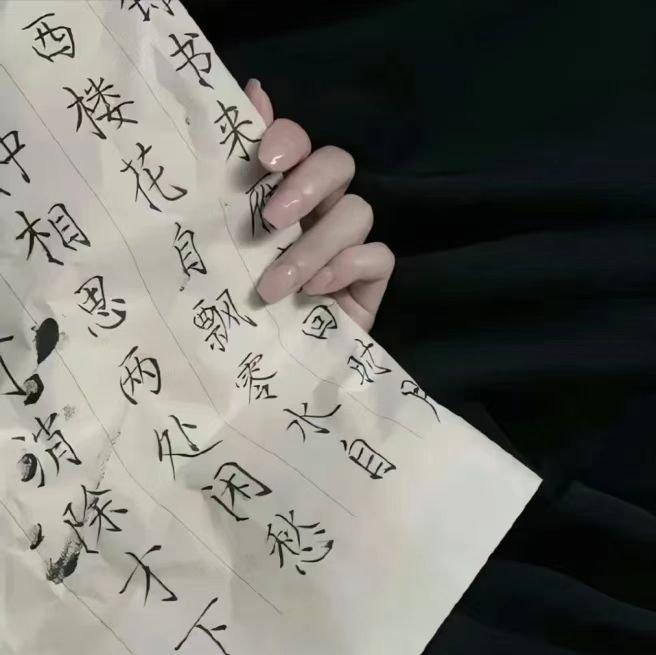 书来雁回时月
西楼花自飘零水自
相思两处闲愁
消除才下